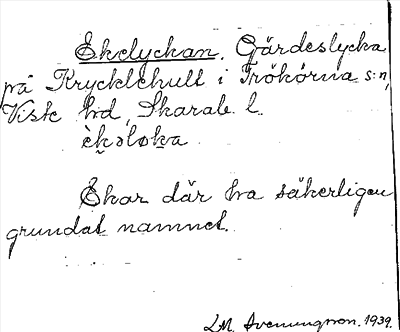 Ekelyckan. Gärdeslycka
på Krycklehult i Trökörna s:n,
Viste hd, Skarab. l.
èkəlo̢ka
Ekar där ha säkerligen
grundat namnet.
L.M. Svenungsson. 1939.